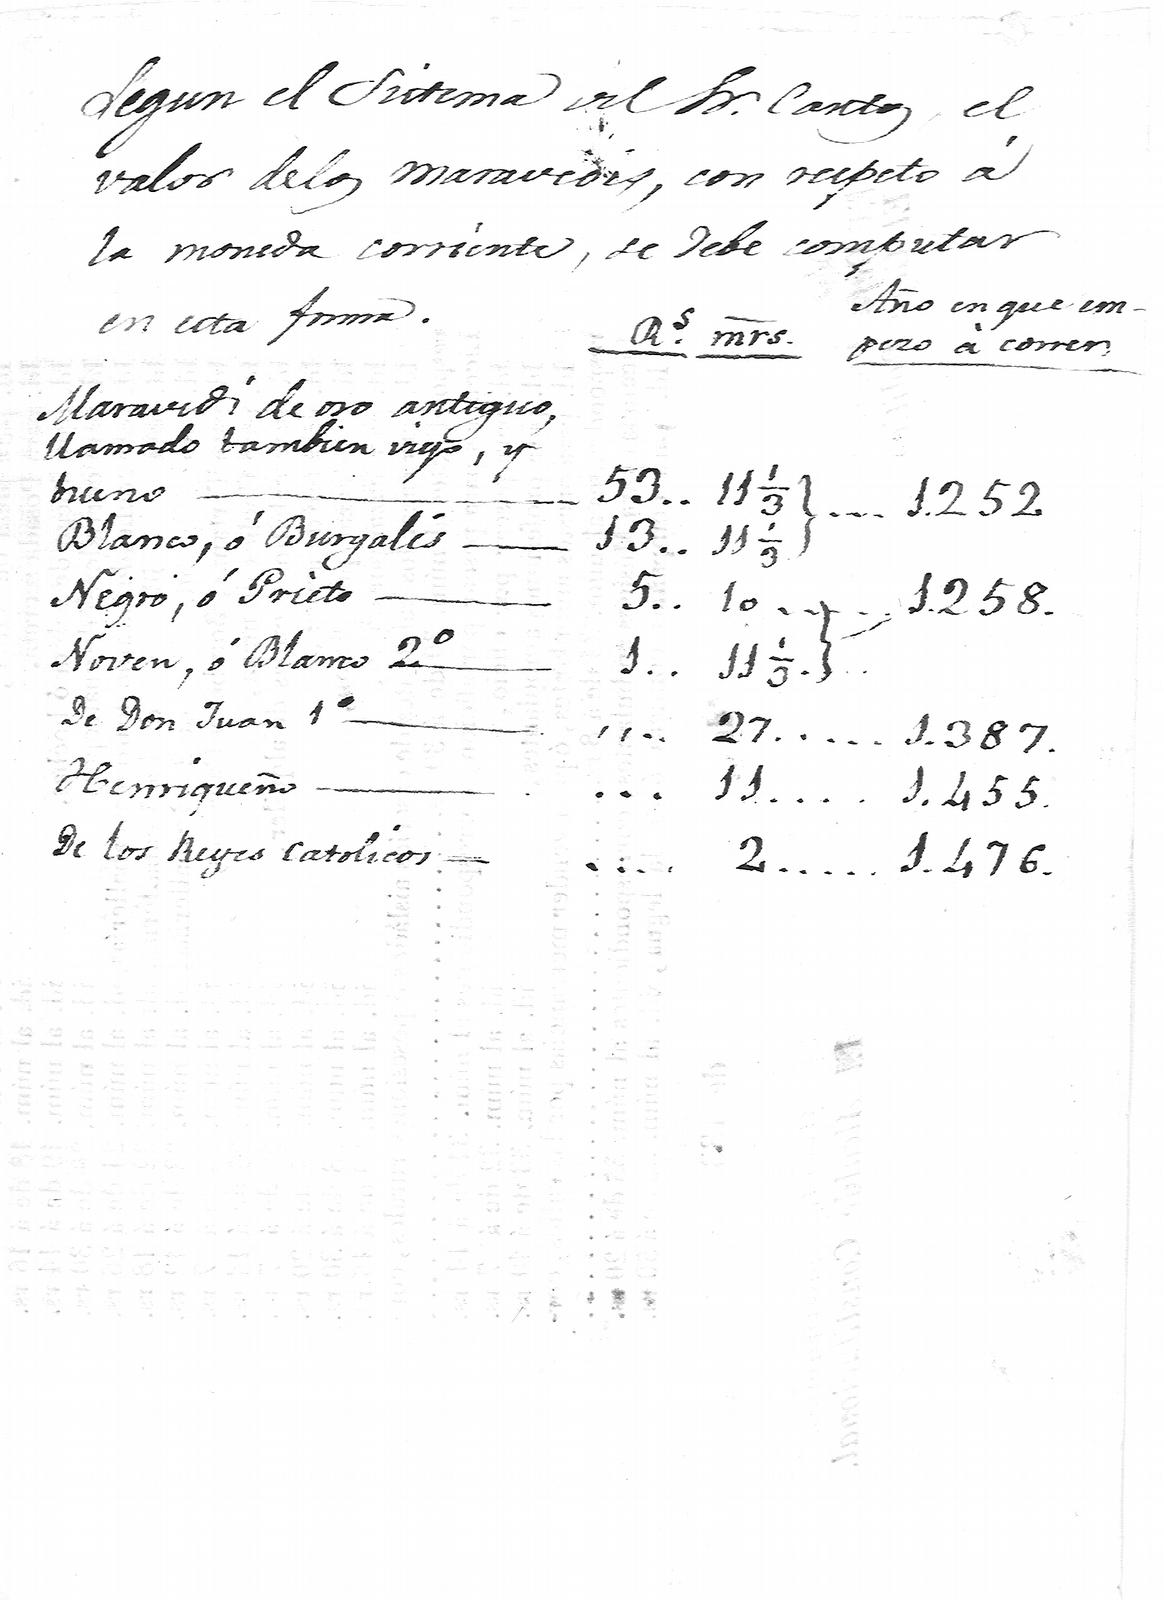 Segun el Sistema del Sr. Cantos, el
valor delos maravedis, con respeto á
la moneda corriente, se debe computar
en esta forma.
Rs. mrs.
Año en que em-
pezo à correr,
Maravedi de oro antiguo,
llamado tambien viejo, y
bueno — 53.. 11 1/3 } .... 1.252
Blanco, ó Burgalés — 13.. 11 1/3 }
Negro, ó Prieto — 5.. 10 ..... 1.258.
Noven, ó Blanco 2º — 1.. 11 1/3. } ..
De Don Juan 1º — .... 27..... 1.387.
Henriqueño — . ... 11.... 1.455.
De los Reyes Catolicos — .... 2..... 1.476.